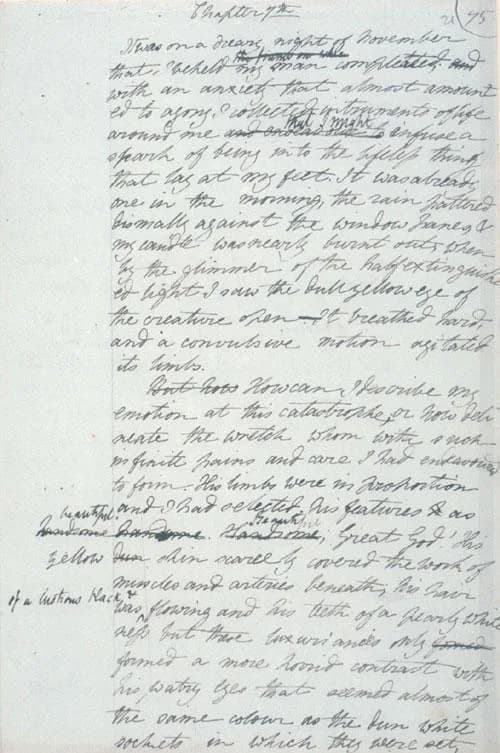 Chapter 7th
21 95
It was on a dreary night of November
the frame on whic
that I beheld my man compleated and
with an anxiety that almost amount
ed to agony, I collected instruments of life
that I might
around me and endeavour to infuse a
spark of being into the lifeless thing
that lay at my feet. It was already
one in the morning, the rain pattered
dismally against the window panes, &
my candle was nearly burnt out, when
by the glimmer of the half extinguish
ed light I saw the dull yellow eye of
the creature open – It breathed hard,
and a convulsive motion agitated
its limbs.
But how How can I describe my
emotion at this catastrophe, or how deli
neate the wretch whom with such
infinite pains and care I had endeavoured
to form. His limbs were in proportion
and I had selected his features & as
beautiful
handsome handsome. Handsome, Great God! His
Beautiful
yellow dun skin scarcely covered the work of
muscles and arteries beneath; his hair
of a lustrous black, &
was flowing and his teeth of a pearly white
ness but these luxuriances only formed
formed a more horrid contrast with
his watry eyes that seemed almost of
the same colour as the dun white
sockets in which they were set